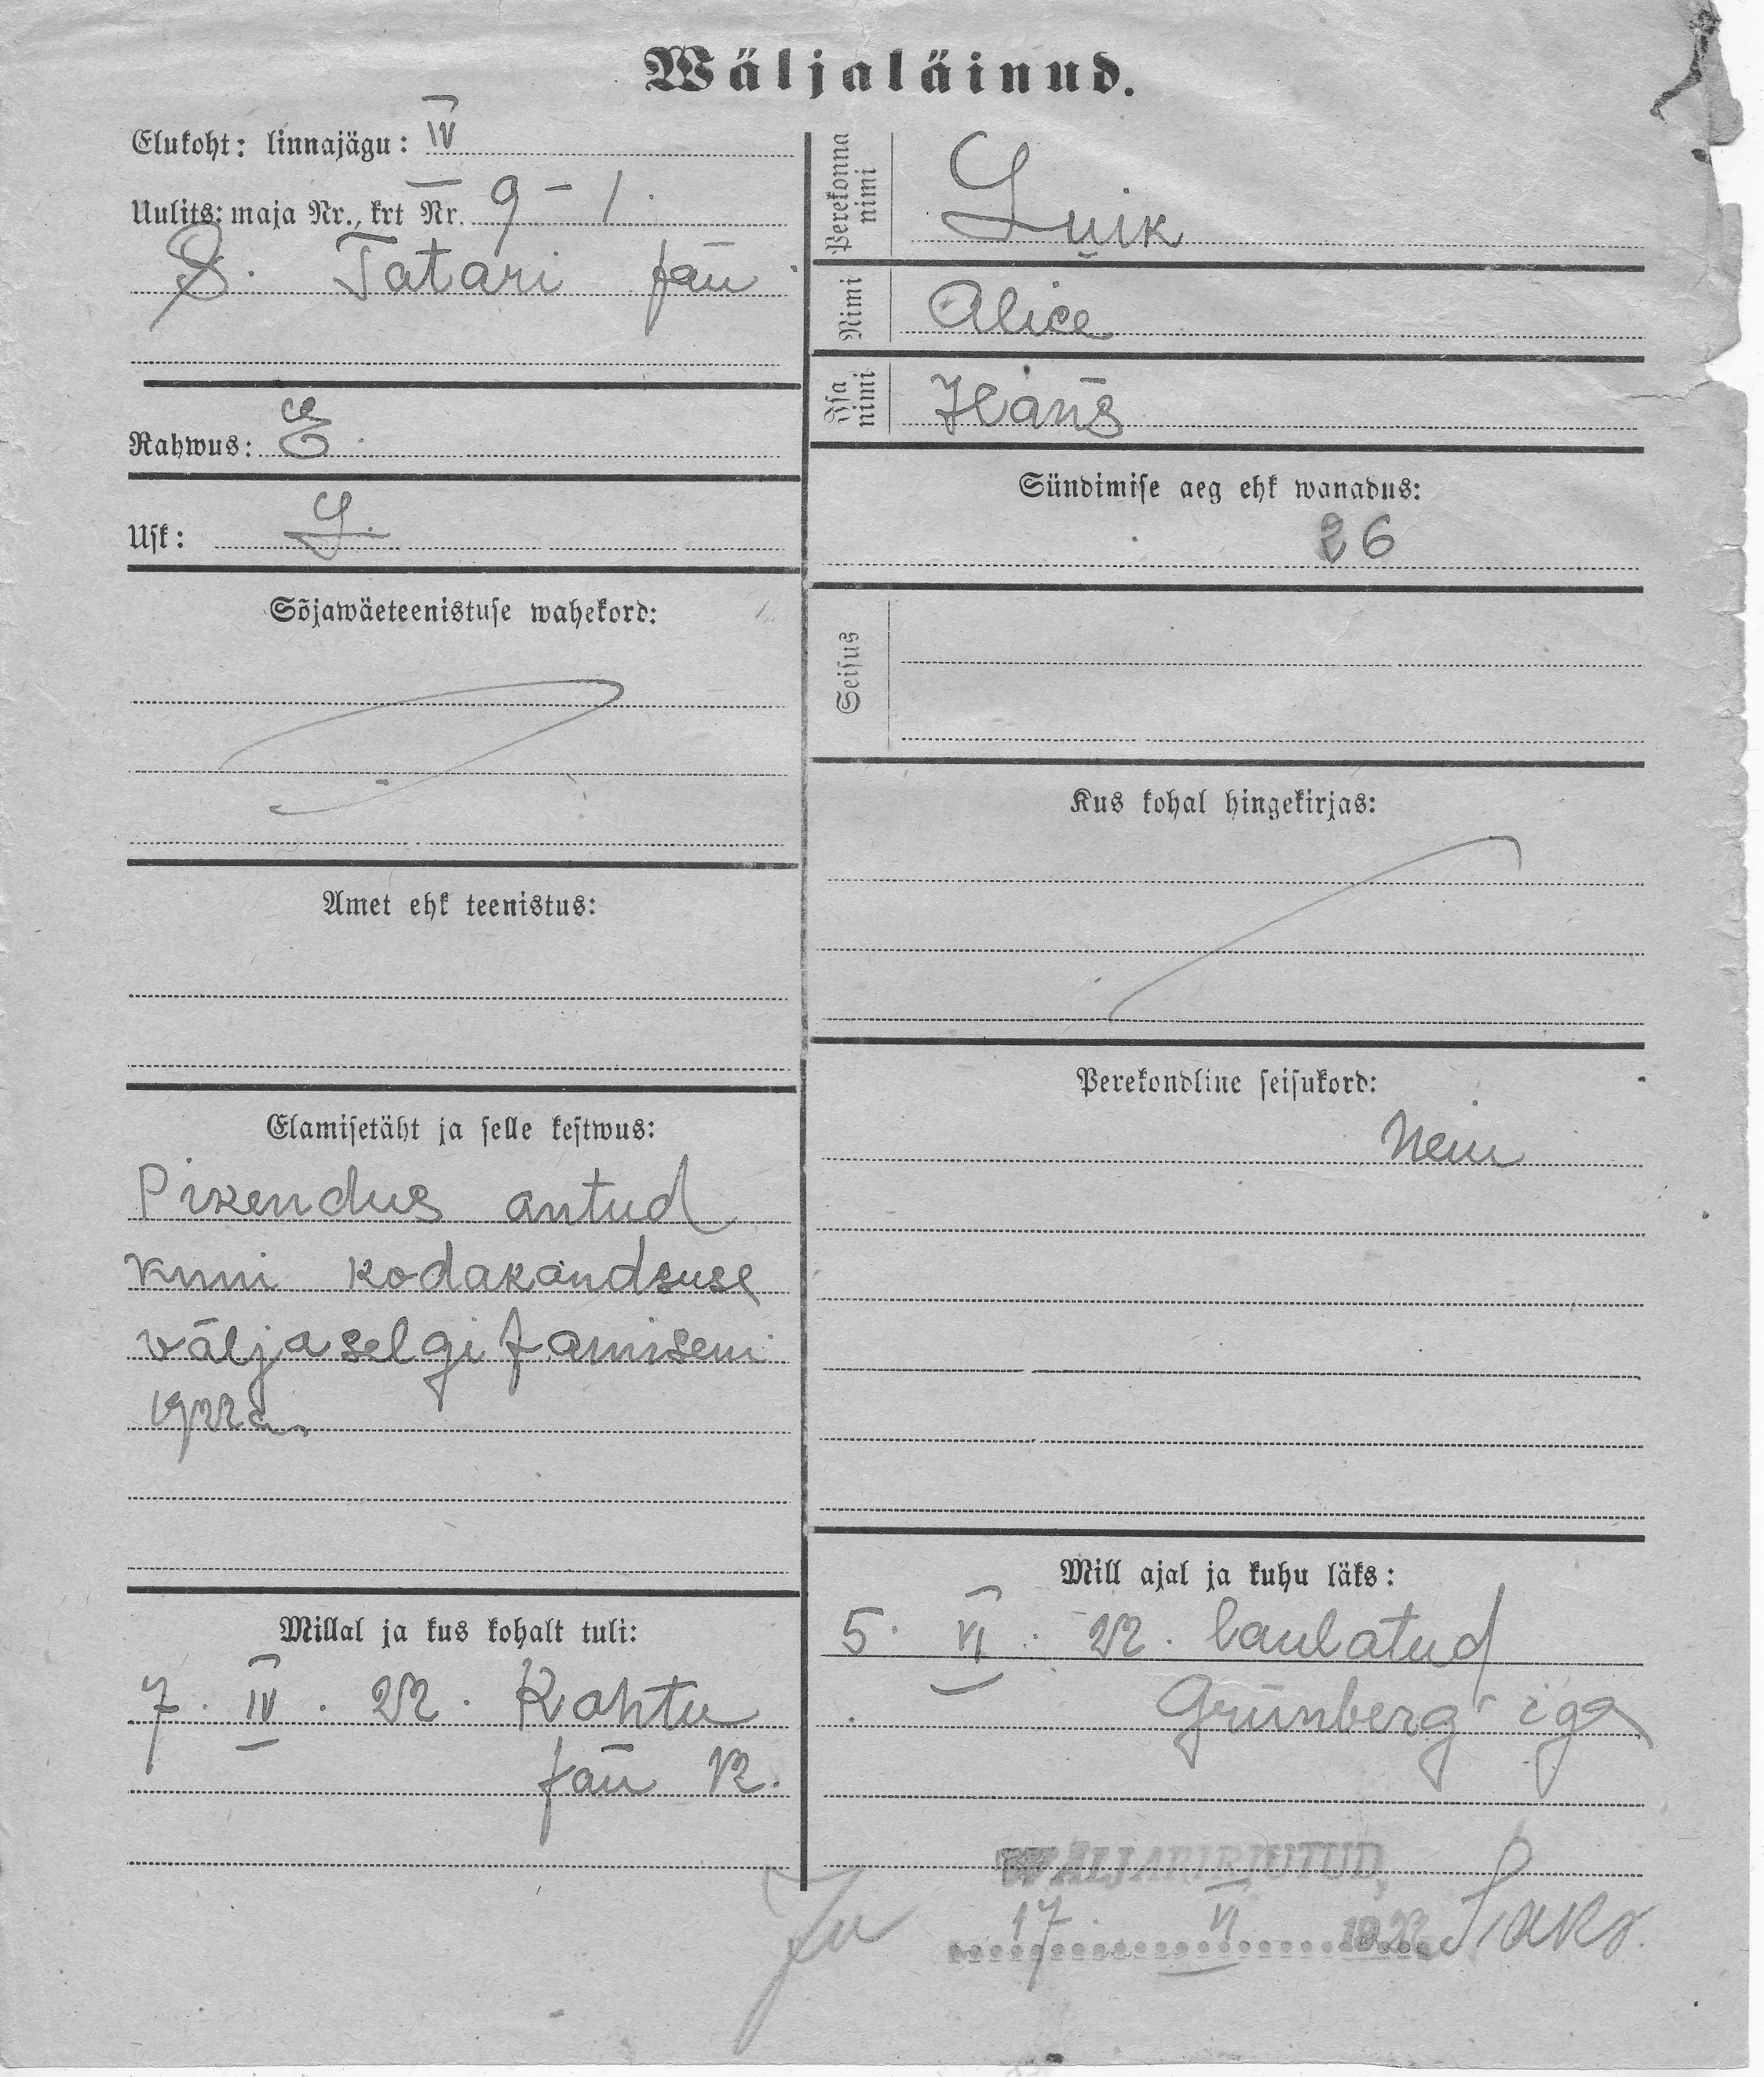 Wäljaläinud.
Elukoht: linnajägu: IV
Uulits: maja Nr., krt Nr. 9 - 1.
S. Tatari tän.
Rahwus: E.
Usk: L.
Sõjawäeteenistuse wahekord:
Amet ehk teenistus:
Elamisetäht ja selle kestwus:
Pikendus antud
kuni kodakondsuse
väljaselgitamiseni
1922 a.
Millal ja kus kohalt tuli:
7. IV. 22. Kohtu
tän 12.
Perekonna nimi
Luik
Nimi
Alice
Isa nimi
Hans
Sündimise aeg ehk wanadus:
26
Seisus
Kus kohal hingekirjas:
Perekondline seisukord:
Neiu
Mill ajal ja kuhu läks:
5. VI. 22. laulatud
Grünberg'iga
WÄLJAKIRJUTUD,
17. VI 1922